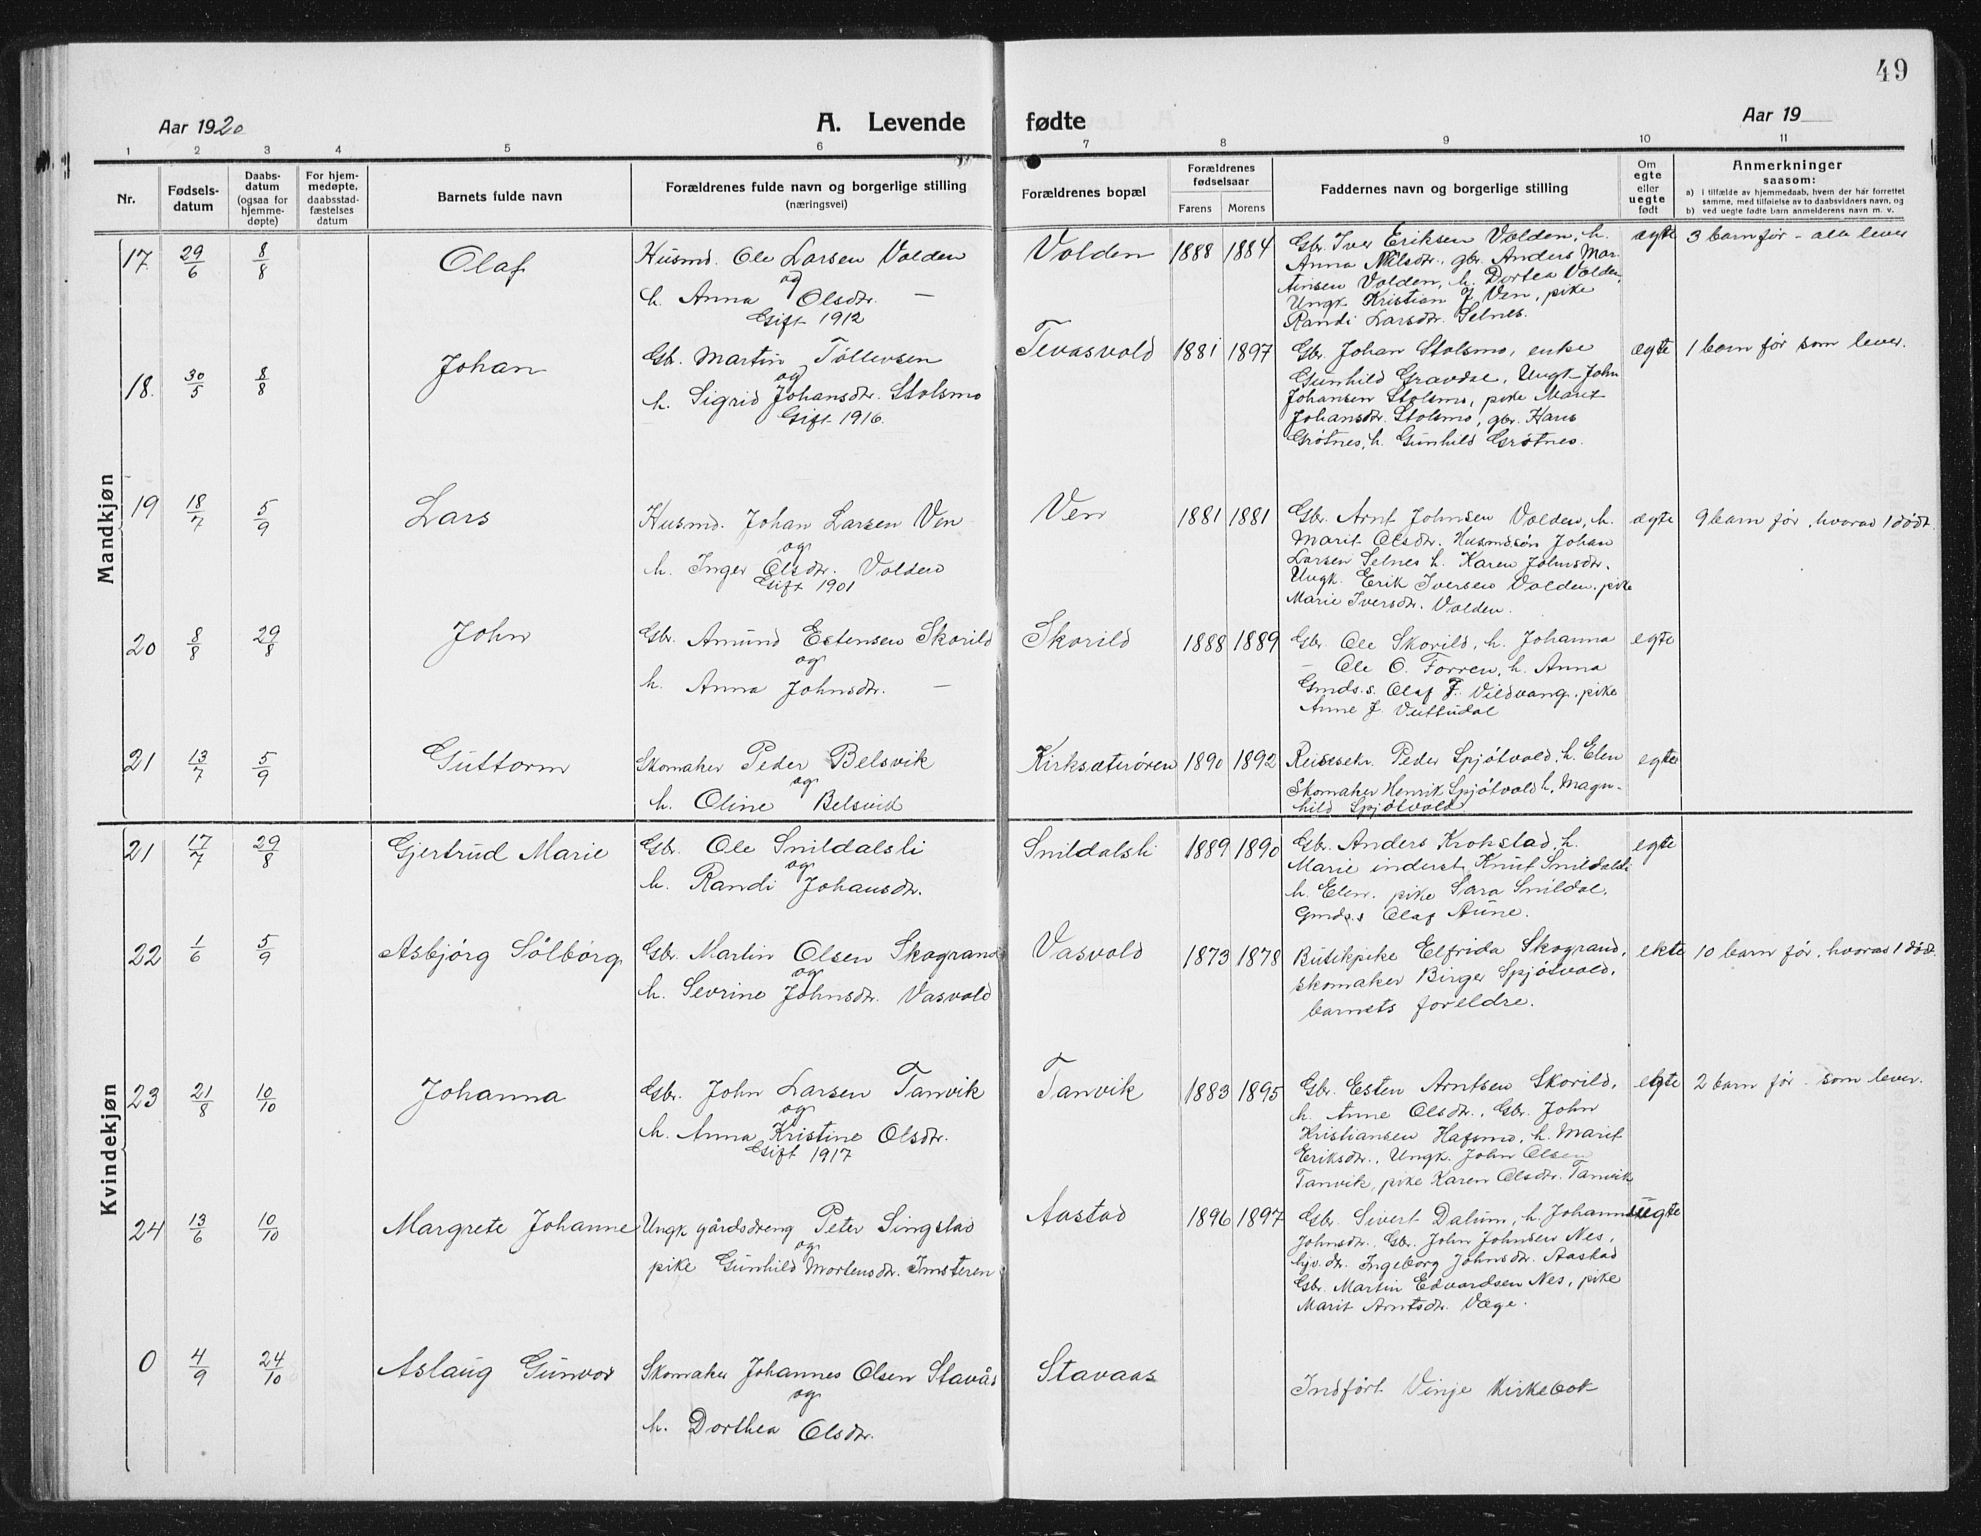 49
Aar 1920
A. Levende fødte
Aar 19
1 2 3 4 5 6 7 8 9 10 11
Nr.
Fødsels-
datum
Daabs-
datum
(ogsaa for
hjemme-
døpte)
For hjem-
medøpte,
daabsstad-
fæstelses
datum
Barnets fulde navn
Forældrenes fulde navn og borgerlige stilling
(næringsvei)
Forældrenes bopæl
Forældrenes
fødselsaar
Farens Morens
Faddernes navn og borgerlige stilling
Om
egte
eller
uegte
født
Anmerkninger
saasom:
a) i tilfælde av hjemmedaab, hvem der har forrettet
samme, med tilføielse av to daabsvidners navn, og
b) ved uegte fødte barn anmelderens navn m. v.
Mandkjøn
17 29/6 8/8 Olaf
Husmd. Ole Larsen Volden
og
h. Anna Olsdtr. —
Gift 1912
Volden 1888 1884
Gbr. Iver Eriksen Volden, h.
Anna Nilsdtr., gbr. Anders Mar-
tinsen Volden, h. Dortea Volden,
Ungk. Kristian J. Ven, pike
Randi Larsdtr. Selnes.
ægte 3 barn før - alle lever
18. 30/5 8/8 Johan
Gbr. Martin Tøllevsen
og
h. Sigrid Johansdtr. Stolsmo
Gift 1916.
Tevasvold 1881 1897
Gbr. Johan Stolsmo, enke
Gunhild Gravdal, Ungk. John
Johansen Stolsmo, pike Marit
Johansdtr. Stolsmo, gbr. Hans
Grøtnes, h. Gunhild Grøtnes.
ægte 1 barn før som lever.
19 18/7 5/9 Lars
Husmd. Johan Larsen Ven
og
h. Inger Olsdtr. Volden
Gift 1901
Ven 1881 1881
Gbr. Arnt Johnsen Volden, h.
Marit Olsdtr. Husmdsøn Johan
Larsen Selnes h. Karen Johnsdtr.
Ungk. Erik Iversen Volden, pike
Marie Iversdtr. Volden.
ægte 9 barn før, hvorav 1 dødt.
20 8/8 29/8 John
Gbr. Amund Estensen Skorild
og
h. Anna Johnsdtr. —
Skorild 1888 1889
Gbr. Ole Skorild, h. Johanna
— Ole O. Forren, h. Anna
Gmds.s. Olaf F. Vildvang, pike
Anne J.
egte
21 13/7 5/9 Guttorm
Skomaker Peder Belsvik
og
h. Oline Belsvik
Kirksæterøren 1890 1892
Reisesekr. Peder Spjøtvold, h. Elen
Skomaker Henrik Spjøtvold h. Magn-
hild Spjøtvold
egte
Kvindekjøn
21 17/7 29/8 Gjertrud Marie
Gbr. Ole Snildalsli
og
h. Randi Johansdtr.
Snildalsli 1889 1890
Gbr. Anders Krokstad, h.
Marie inderst Knut Snildalsli
h. Elen. pike Sara Snildal.
Gmds.s Olaf Aune.
egte
22 1/6 5/9 Asbjørg Sølbørg
Gbr. Martin Olsen Skogrand
og
h. Sevrine Johnsdtr. Vasvold
Vasvold 1873 1878
Butikpike Elfrida Skogrand,
skomaker Birger Spjøtvold,
barnets foreldre.
ekte 10 barn før, hvorav 1 dødt.
23 21/8 10/10 Johanna
Gbr. John Larsen Tanvik
og
h. Anna Kristine Olsdtr.
Gift 1917
Tanvik 1883 1895
Gbr. Esten Arntsen Skorild,
h. Anne Olsdtr., Gbr. John
Kristiansen Hafsmo, h. Marit
Eriksdtr., Ungk. John Olsen
Tanvik, pike Karen Olsdtr. Tanvik
egte 2 barn før - som lever.
24 13/6 10/10 Margrete Johanne
Ungk. gårdsdreng Peter Singstad
og
pike Gunhild Mortensdtr. Imsteren
Aastad 1896 1897
Gbr. Sivert Dalum, h. Johanna
Johnsdtr., Gbr. John Johnsen Nes,
Ingeborg Johnsdtr. Aastad
Gbr. Martin Edvardsen Nes, pike
Marit Arntsdtr. Væge.
uegte
0 4/9 24/10 Aslaug Gunvor
Skomaker Johannes Olsen Stavås
og
h. Dorthea Olsdtr.
Stavaas
Indført Vinje Kirkebok